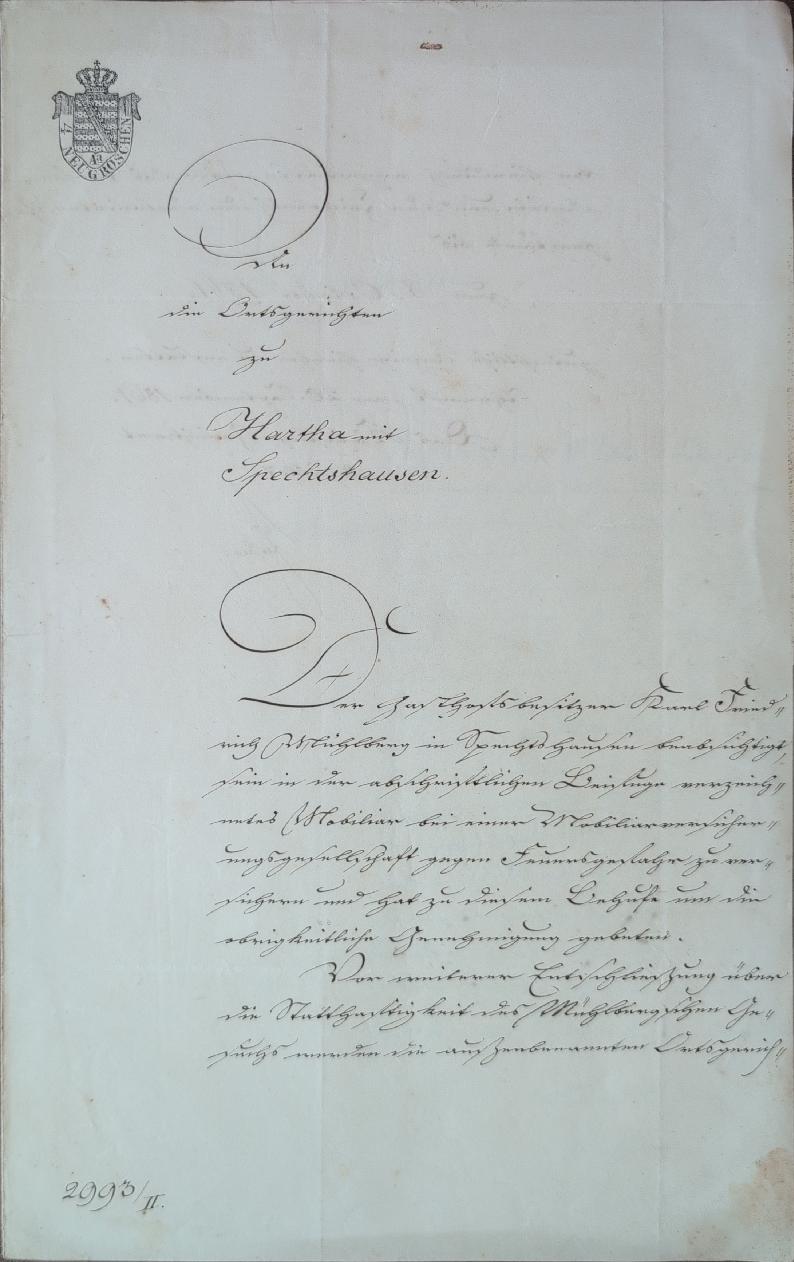 4 NEUGROSCHEN
An
die Ortsgerichten
zu
Hartha mit
Spechtshausen.
Der Gasthofsbesitzer Karl Fried„
rich Mühlberg in Spechtshausen beabsichtigt,
sein in der abschriftlichen Beifuge verzeich„
netes Mobiliar bei einer Mobiliarversicher„
ungsgesellschaft gegen Feuersgefahr zu ver„
sichern und hat zu diesem Behufe um die
obrigkeitliche Genehmigung gebeten.
Vor weiterer Entschließung über
die Statthaftigkeit des Mühlbergschen Ge„
suchs werden die außenbenannten Ortsgerich„
2993/II.